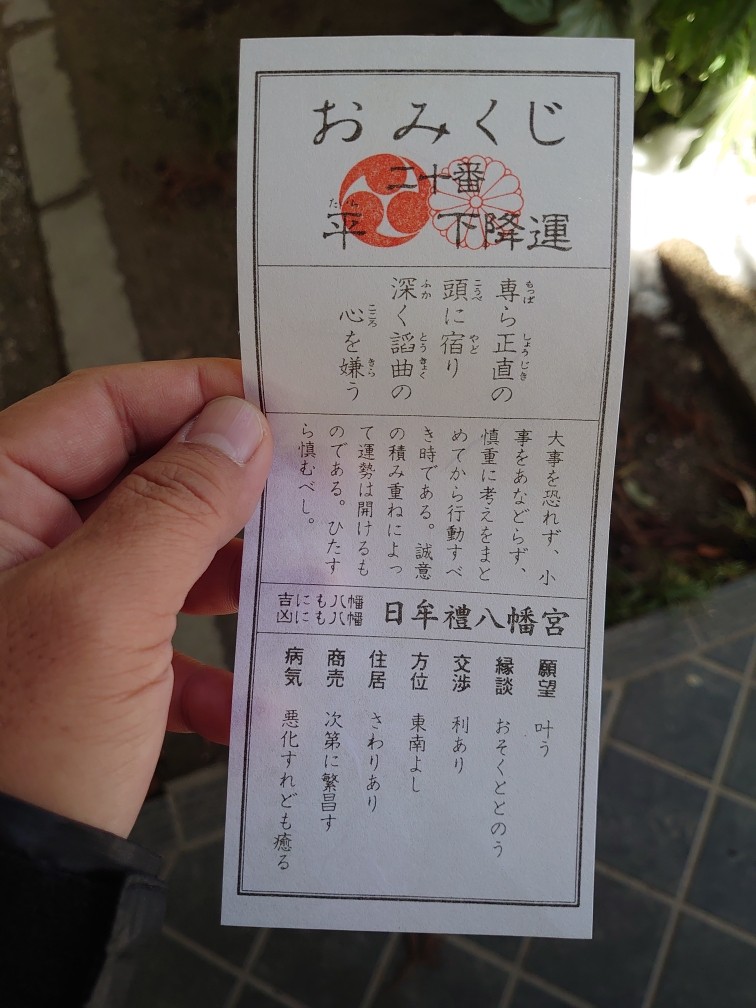 おみくじ
二十番
たいら
平 下降運
専ら正直の
もっぱ しょうじき
頭に宿り
こうべ やど
深く謟曲の
ふか とうきょく
心を嫌う
こころ きら
大事を恐れず、小
事をあなどらず、
慎重に考えをまと
めてから行動すべ
き時である。誠意
の積み重ねによっ
て運勢は開けるも
のである。ひたす
ら慎むべし。
日牟禮八幡宮
吉にも八幡
凶にも八幡
願望 叶う
縁談 おそくととのう
交渉 利あり
方位 東南よし
住居 さわりあり
商売 次第に繁昌す
病気 悪化すれども癒る